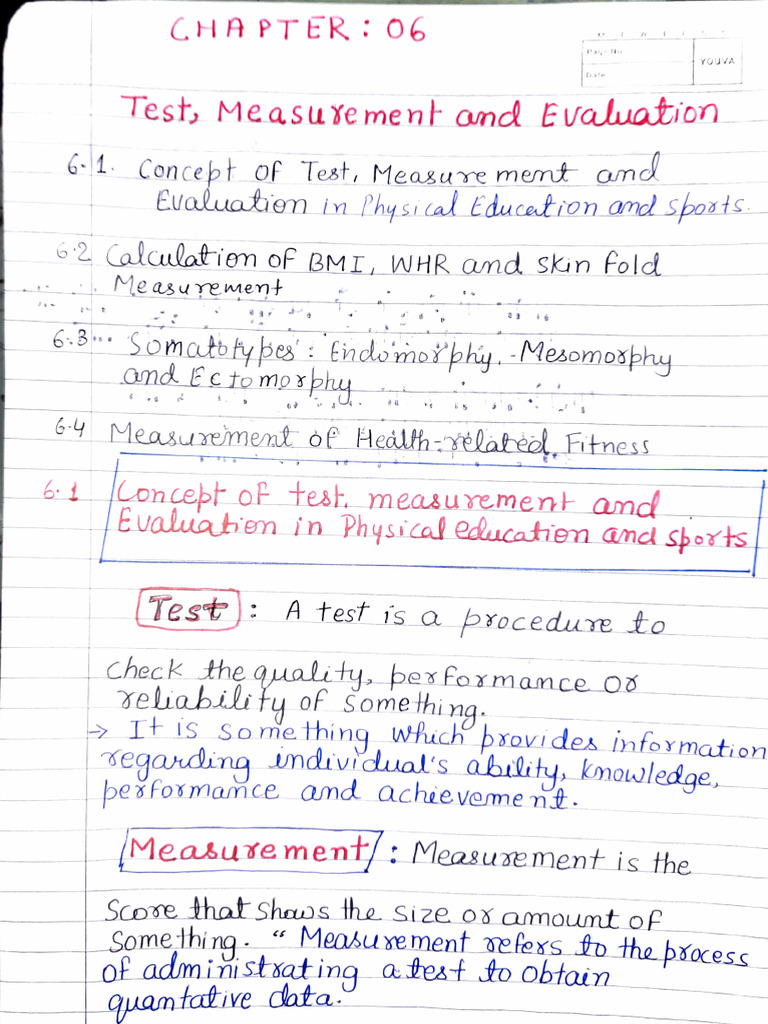 CHAPTER: 06
Page No.
Date
YOUVA
Test, Measurement and Evaluation
6.1. Concept of Test, Measurement and
Evaluation in Physical Education and sports.
6.2 Calculation of BMI, WHR and skin fold
Measurement
6.3 Somatotypes: Endomorphy, Mesomorphy
and Ectomorphy
6.4 Measurement of Health-related Fitness
6.1 Concept of test, measurement and
Evaluation in Physical education and sports
Test : A test is a procedure to
check the quality, performance or
reliability of something.
→ It is something which provides information
regarding individual's ability, knowledge,
performance and achievement.
Measurement : Measurement is the
score that shows the size or amount of
something. " Measurement refers to the process
of administrating a test to obtain
quantative data.